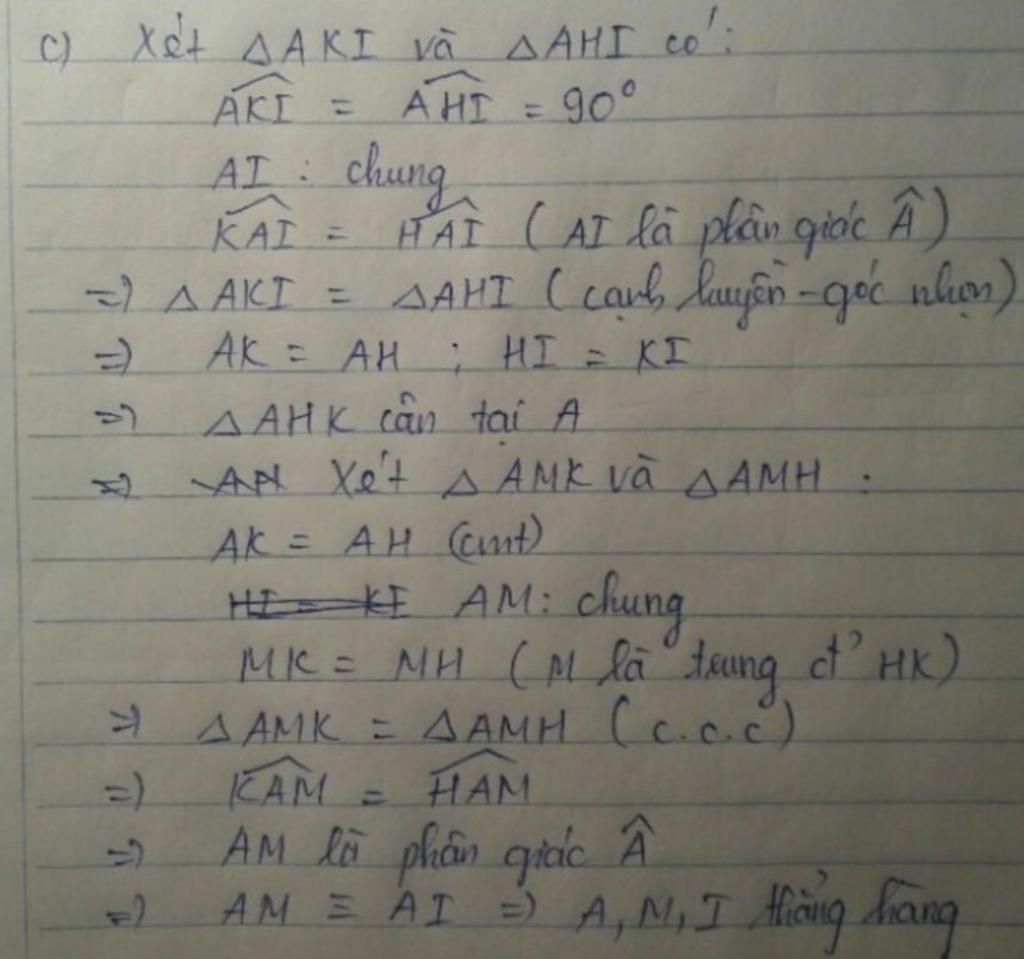 c) Xét △AKI và △AHI có:
$\widehat{AKI}$ = $\widehat{AHI}$ = 90°
AI : chung
$\widehat{KAI}$ = $\widehat{HAI}$ (AI là phân giác Â)
=) △AKI = △AHI (cạnh huyền-góc nhọn)
=) AK = AH ; HI = KI
=) △AHK cân tại A
=) Xét △AMK và △AMH :
AK = AH (cmt)
~~HI = KI~~ AM: chung
MK = MH (M là trung đ' HK)
=) △AMK = △AMH (c.c.c)
=) $\widehat{KAM}$ = $\widehat{HAM}$
=) AM là phân giác Â
=) AM ≡ AI =) A, M, I thẳng hàng